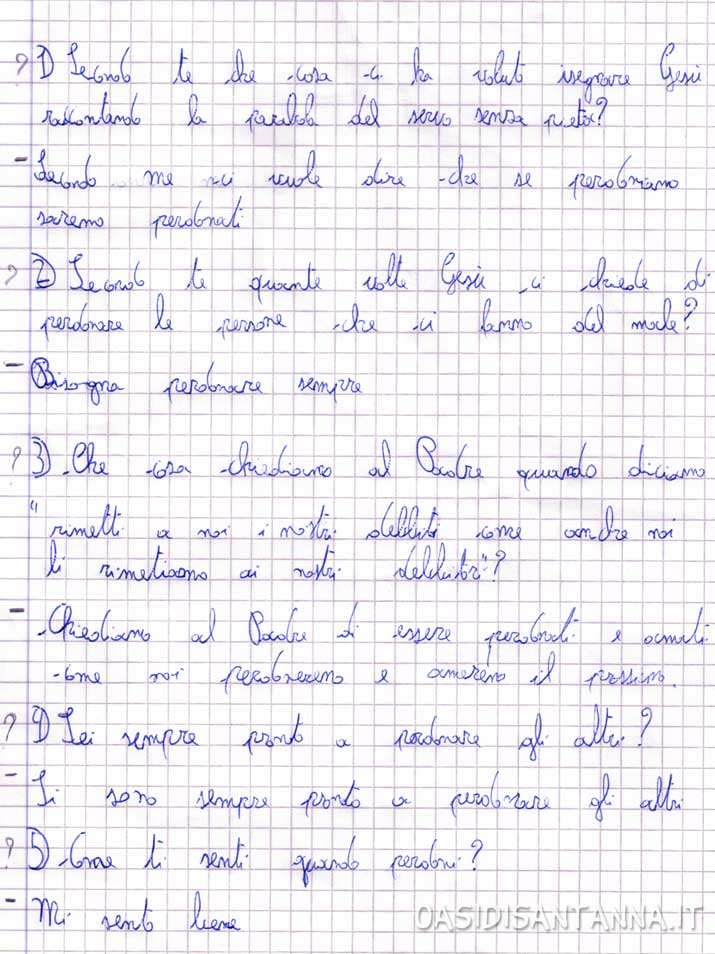 ? 1) Secondo te che cosa ci ha voluto insegnare Gesù
raccontando la parabola del servo senza pietà?
- Secondo me ci vuole dire che se perdoniamo
saremo perdonati
? 2) Secondo te quante volte Gesù ci chiede di
perdonare le persone che ci fanno del male?
- Bisogna perdonare sempre
? 3) Che cosa chiediamo al Padre quando diciamo
"rimetti a noi i nostri debiti come anche noi
li rimettiamo ai nostri debitori"?
- Chiediamo al Padre di essere perdonati e amati
come noi perdoneremo e ameremo il prossimo.
? 4) Sei sempre pronto a perdonare gli altri?
- Si sono sempre pronto a perdonare gli altri
? 5) Come ti senti quando perdoni?
- Mi sento bene
OASIDISANTANNA.IT